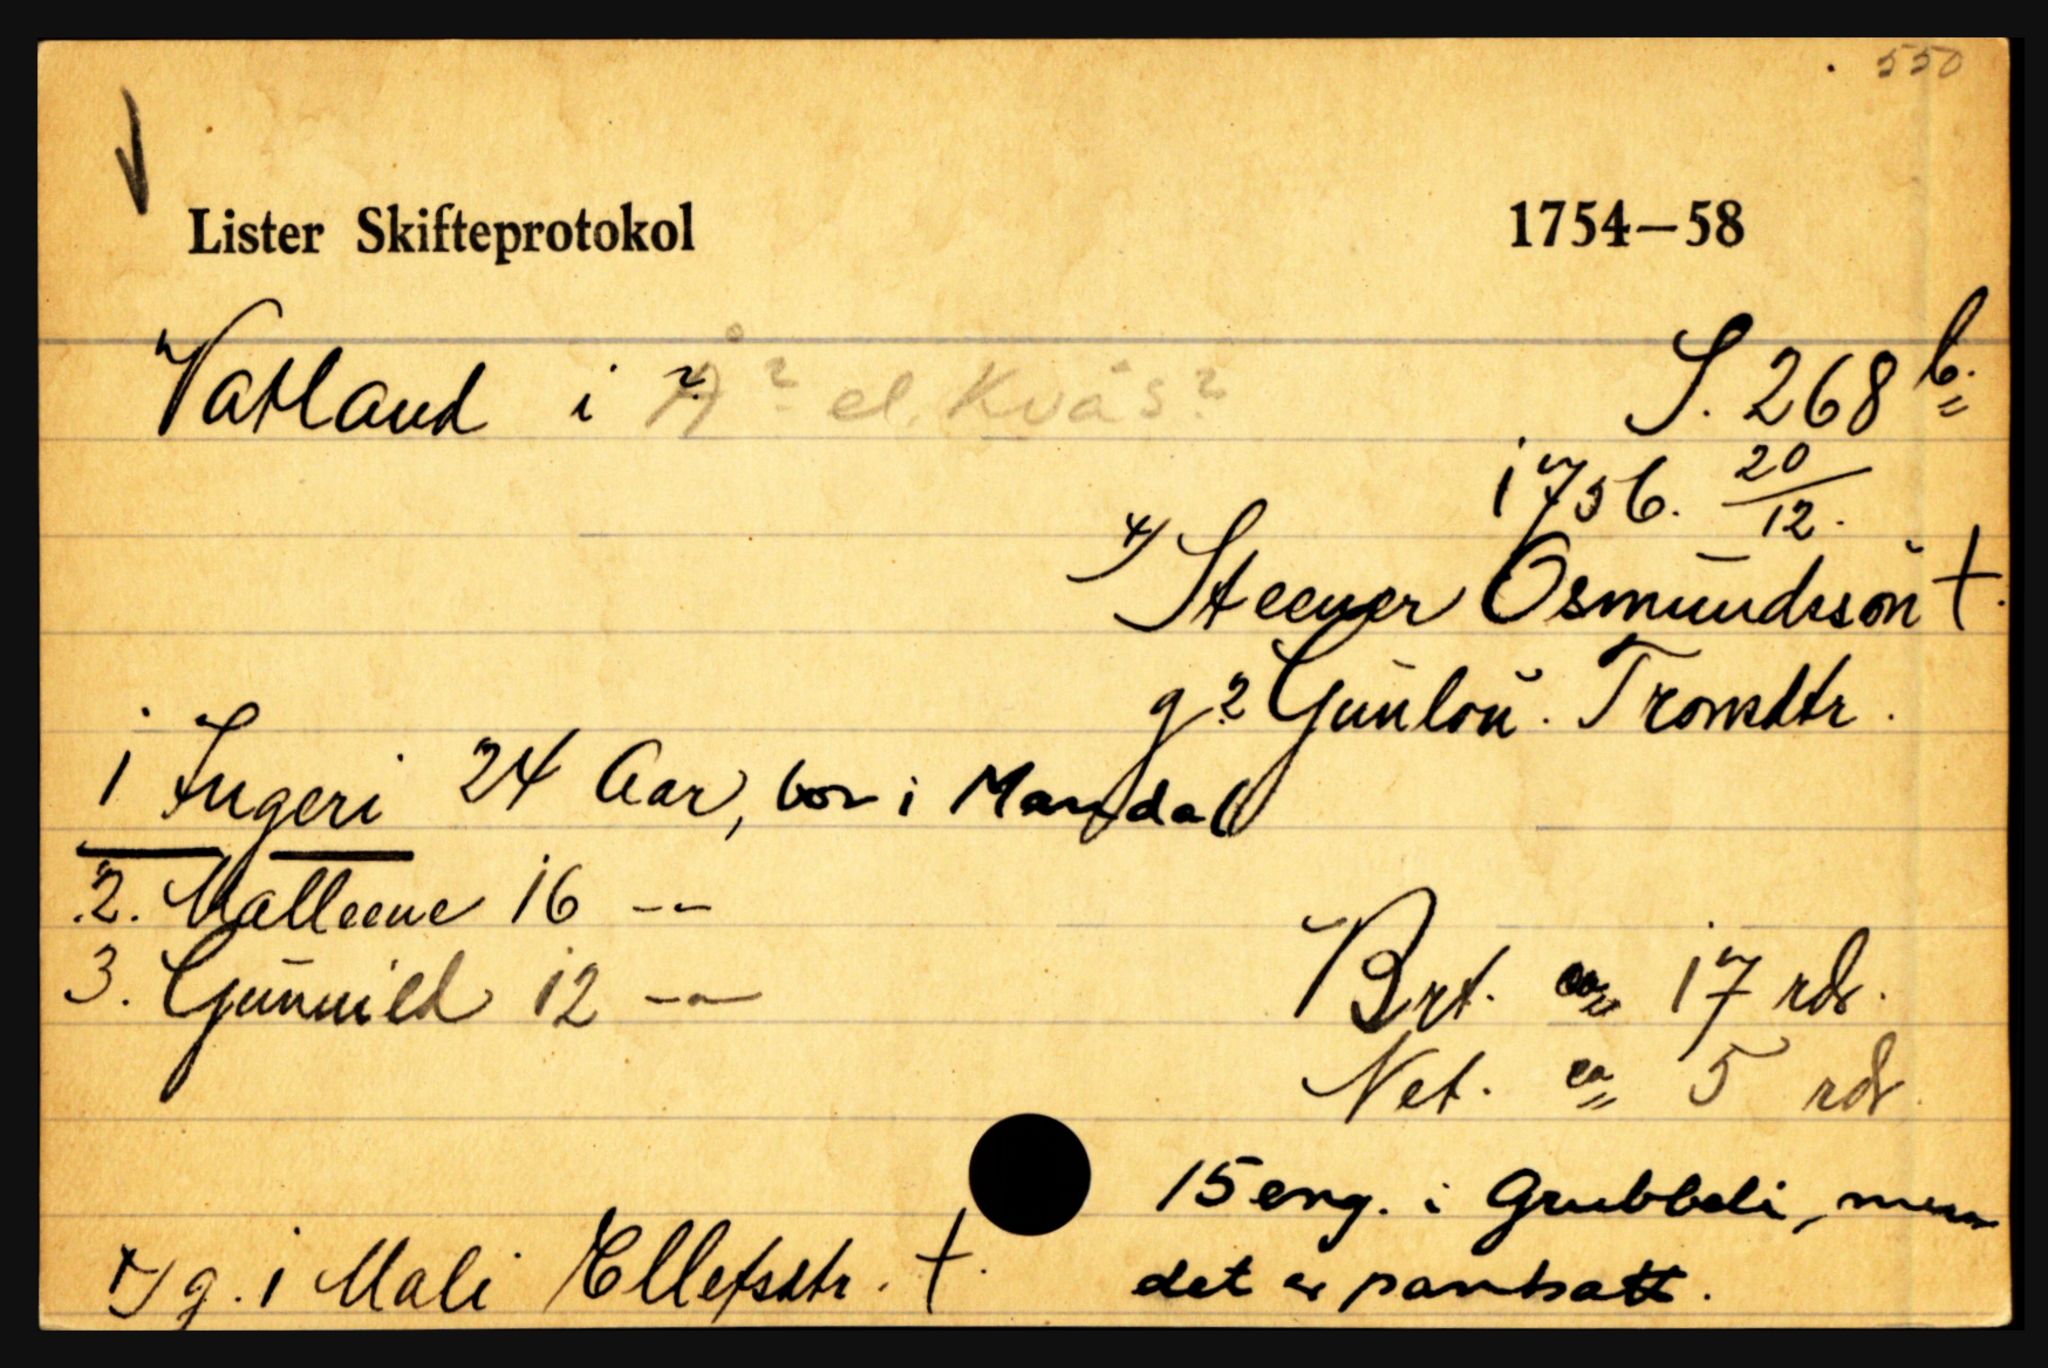 550
Lister Skifteprotokol 1754–58
Vatland i Å? el. Kvås? S. 268 b.
1756. 20/12.
x) Steener Osmundssøn †.
g. 2 Gunlou. Tromsdtr.
1 Ingeri 24 Aar, bor i Mandal
2. Malleene 16 -"-
3. Gunnild 12 -"-
Brt. ca 17 rdr.
Net. ca 5 rdr.
15 eng. i Grubbeli, men
det er pantsatt.
x) g. 1 Mali Ellefsdtr. †.